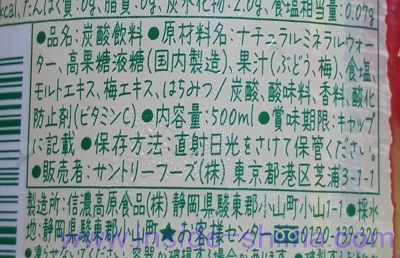 kcal、たんぱく質:0g、脂質:0g、炭水化物:2.0g、食塩相当量:0.07g
●品名:炭酸飲料●原材料名:ナチュラルミネラルウォー
ター、高果糖液糖(国内製造)、果汁(ぶどう、梅)、食塩、
モルトエキス、梅エキス、はちみつ/炭酸、酸味料、香料、酸化
防止剤(ビタミンC)●内容量:500ml●賞味期限:キャップ
に記載●保存方法:直射日光をさけて保管ください。
●販売者:サントリーフーズ(株) 東京都港区芝浦3-1-1
製造所:信濃高原食品(株)静岡県駿東郡小山町小山1-1●採水
地:静岡県駿東郡小山町★お客様センター 0120-139-320